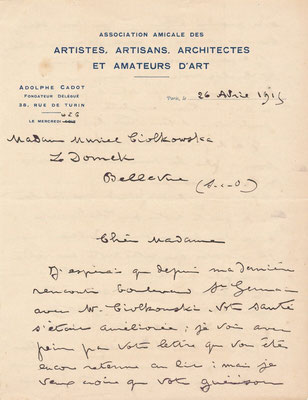 ASSOCIATION AMICALE DES
ARTISTES, ARTISANS, ARCHITECTES
ET AMATEURS D'ART
ADOLPHE CADOT
FONDATEUR DÉLÉGUÉ
38, RUE DE TURIN
LE MERCREDI
Paris, le 26 Avril 1915
Madame Muriel Ciolkowska
Le Domek
Bellevue (S.-&-O.)
Chère Madame
J'espérais que depuis ma dernière
rencontre boulevard St Germain
avec M. Ciolkowski votre santé
s'était améliorée ; je vois avec
peine par votre lettre que vous êtes
encore retenue au lit : mais je
veux croire que votre guérison